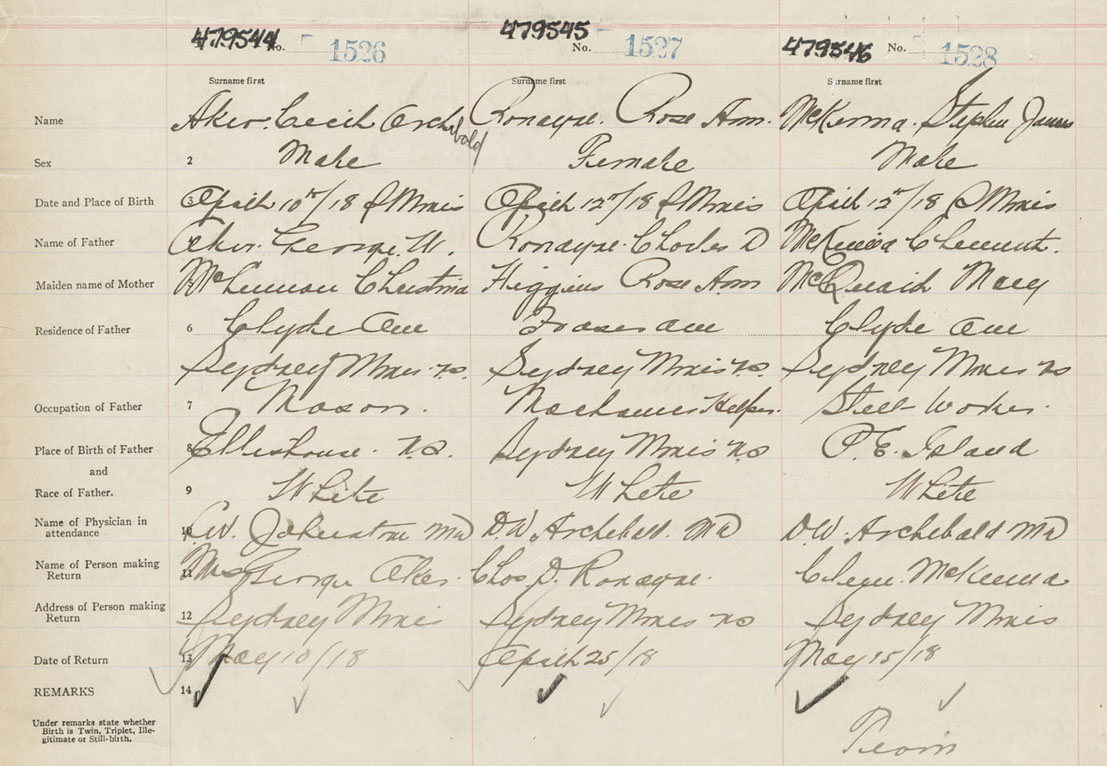 479544 No. 1526 479545 No. 1527 479546 No. 1528
Surname first Surname first Surname first
Name Aker. Cecil Archibold Ronayne. Rose Ann. McKenna. Stephen James
Sex 2 Male Female Male
Date and Place of Birth 3 April 10th/18 S Mines April 12th/18 S Mines April 12th/18 S Mines
Name of Father Aker. George W. Ronayne. Charles D McKenna Clement.
Maiden name of Mother McLennan Christina Higgins Rose Ann McQuaid Mary
Residence of Father 6 Clyde Ave Fraser ave Clyde ave
Sydney Mines N.S. Sydney Mines N.S. Sydney Mines NS
Occupation of Father 7 Mason. Machanics Helper. Steel Worker.
Place of Birth of Father 8 Elleshouse. N.S. Sydney Mines N.S P. E. Island
and
Race of Father. 9 White White White
Name of Physician in
attendance 10 W. Johnston MD D.W. Archibald. MD D.W. Archibald MD
Name of Person making
Return 11 Mrs George Aker. Chas. D. Ronayne. Clem. McKenna
Address of Person making
Return 12 Sydney Mines Sydney Mines NS Sydney Mines
Date of Return 13 May 10/18 April 25/18 May 15/18
REMARKS 14
Under remarks state whether
Birth is Twin, Triplet, Ille-
gitimate or Still-birth.